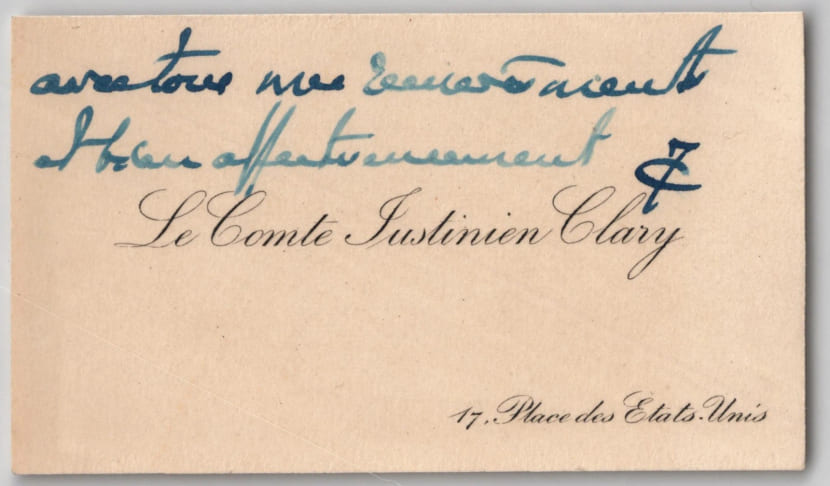 avec tous mes remerciements
et bien affectueusement JC
Le Comte Justinien Clary
17, Place des Etats-Unis